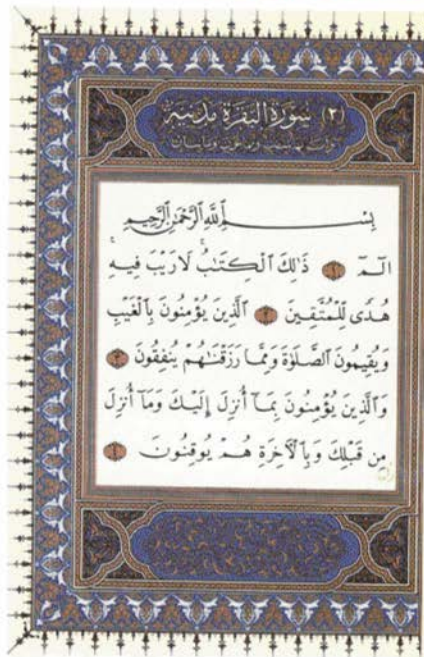 (٢) سُورَةُ البَقَرَةِ مَدَنِيَّة
بِسْــــمِ اللَّهِ الرَّحْمَٰنِ الرَّحِيمِ
الٓمٓ ١ ذَٰلِكَ الْكِتَٰبُ لَا رَيْبَ فِيهِ
هُدًى لِلْمُتَّقِينَ ٢ الَّذِينَ يُؤْمِنُونَ بِالْغَيْبِ
وَيُقِيمُونَ الصَّلَوٰةَ وَمِمَّا رَزَقْنَٰهُمْ يُنفِقُونَ ٣
وَالَّذِينَ يُؤْمِنُونَ بِمَآ أُنزِلَ إِلَيْكَ وَمَآ أُنزِلَ
مِن قَبْلِكَ وَبِالْآخِرَةِ هُمْ يُوقِنُونَ ٤